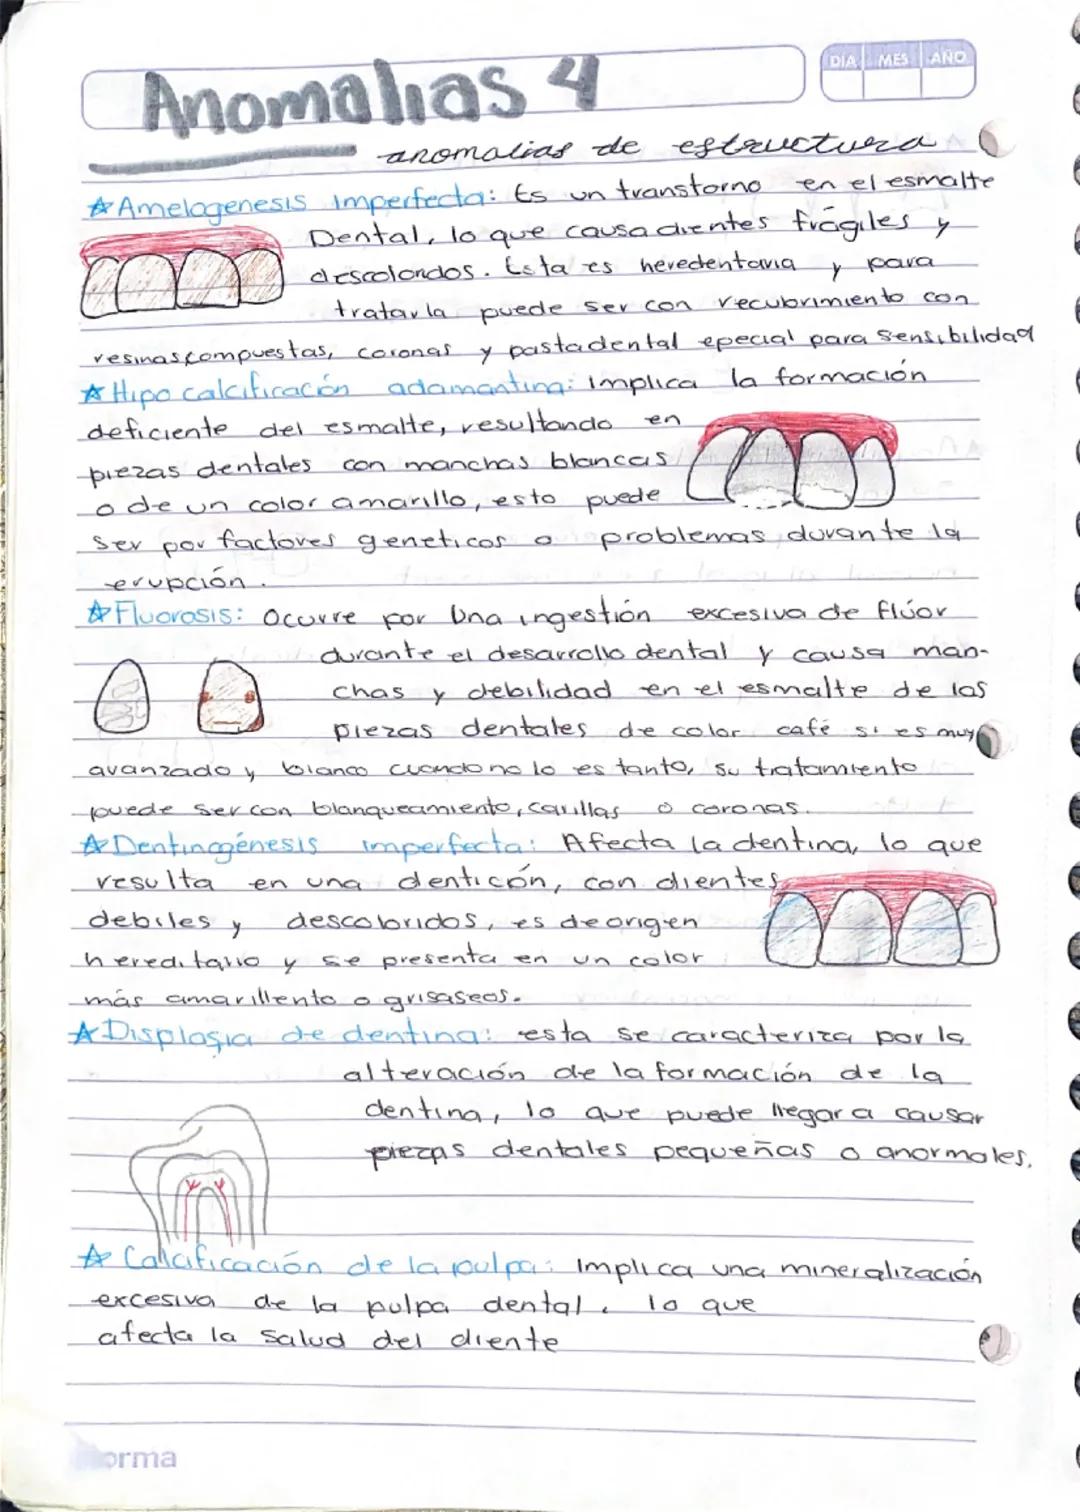 DÍA MES AÑO
Anomalias 4
anomalias de estructura
☆Amelogenesis Imperfecta: Es un transtorno en el esmalte
Dental, lo que causa dientes frágiles y
descolordos. Esta es heredentaria y para
tratarla puede ser con recubrimiento con
resinas compuestas, coronas y pasta dental epecial para sensibilidad
☆Hipo calcificación adamantina: implica la formación
deficiente del esmalte, resultando en
piezas dentales con manchas blancas
o de un color amarillo, esto puede
ser por factores geneticos o problemas durante la
erupción.
☆Fluorosis: Ocurre por una ingestión excesiva de flúor
durante el desarrollo dental y causa man-
chas y debilidad en el esmalte de las
piezas dentales de color café si es muy
avanzado y blanco cuando no lo es tanto, su tratamiento
puede ser con blanqueamiento, carillas o coronas.
☆Dentinogénesis imperfecta: Afecta la dentina, lo que
resulta en una dentición, con dientes
debiles y descoloridos, es de origen
hereditario y se presenta en un color
más amarillento o grisaseos.
☆Displasia de dentina: esta se caracteriza por la
alteración de la formación de la
dentina, lo que puede llegar a causar
piezas dentales pequeñas o anormales.
☆ Calcificación de la pulpa: Implica una mineralización
excesiva de la pulpa dental, lo que
afecta la salud del diente
norma